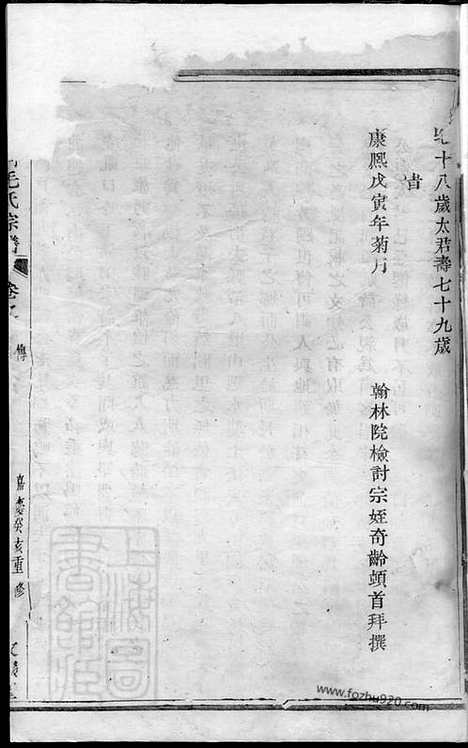 十八歲太君壽七十九歲
旹
康熙戊寅年菊月
翰林院檢討宗姪奇齡頓首拜撰
毛氏宗譜
卷之
傳
嘉慶癸亥重修
上海圖書館藏
www.fozhu920.com